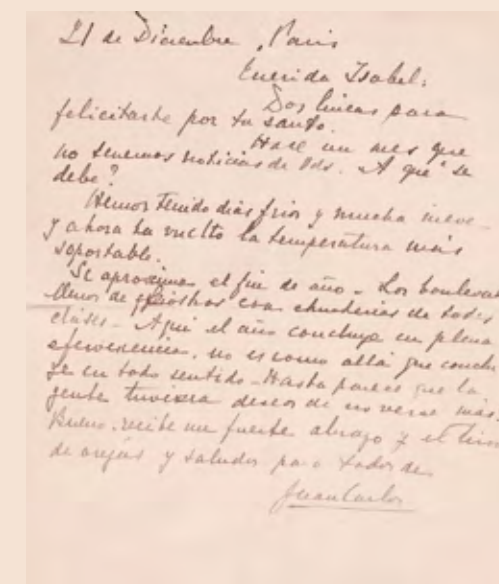 21 de Diciembre, Paris
Querida Isabel:
Dos lineas para
felicitarte por tu santo.
Hace un mes que
no tenemos noticias de Uds. A qué se
debe?
Hemos tenido dias frios y mucha nieve -
y ahora ha vuelto la temperatura más
soportable.
Se aproxima el fin de año - Los boulevar
llenos de kioskos con chucherias de todas
clases - Aqui el año concluye en plena
efervescencia, no es como allá que conclu
ye en todo sentido - Hasta parece que la
gente tuviera deseos de no verse más.
Bueno, recibe un fuerte abrazo y el
de orejas y saludos para todos de
Juan Carlos